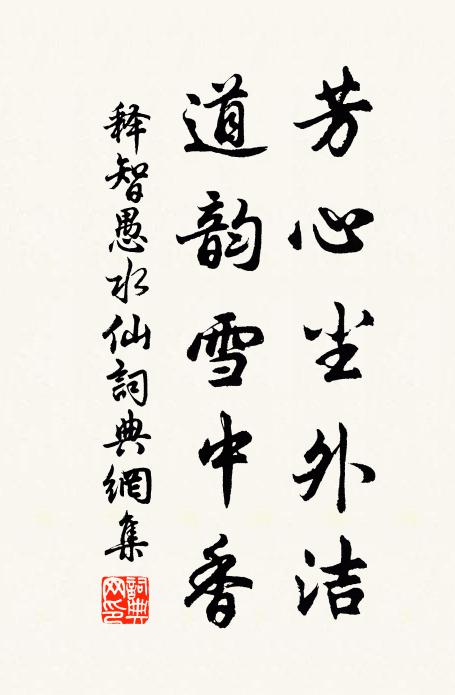 芳心尘外洁
道韵雪中香
释智愚水仙詞典網集
詞典网印